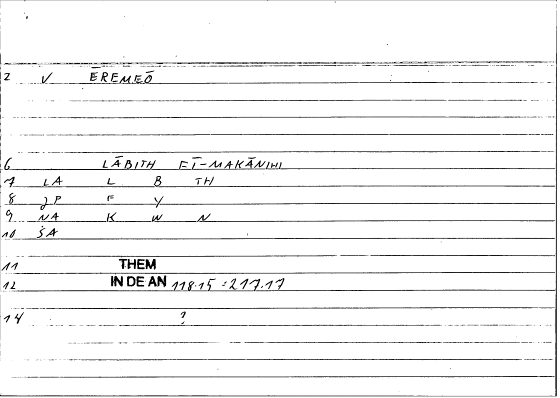 2 V ĒREMEŌ
6 LĀBITH FĪ-MAKĀNIHI
7 LA L B TH
8 JP F Y
9 NA K W N
10 ŠA
11 THEM
12 IN DE AN 118.15 = 217.17
14 ?